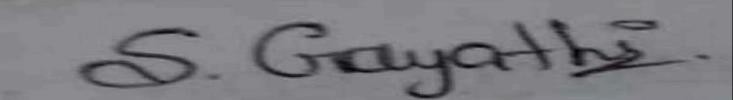 S. Gayathri.